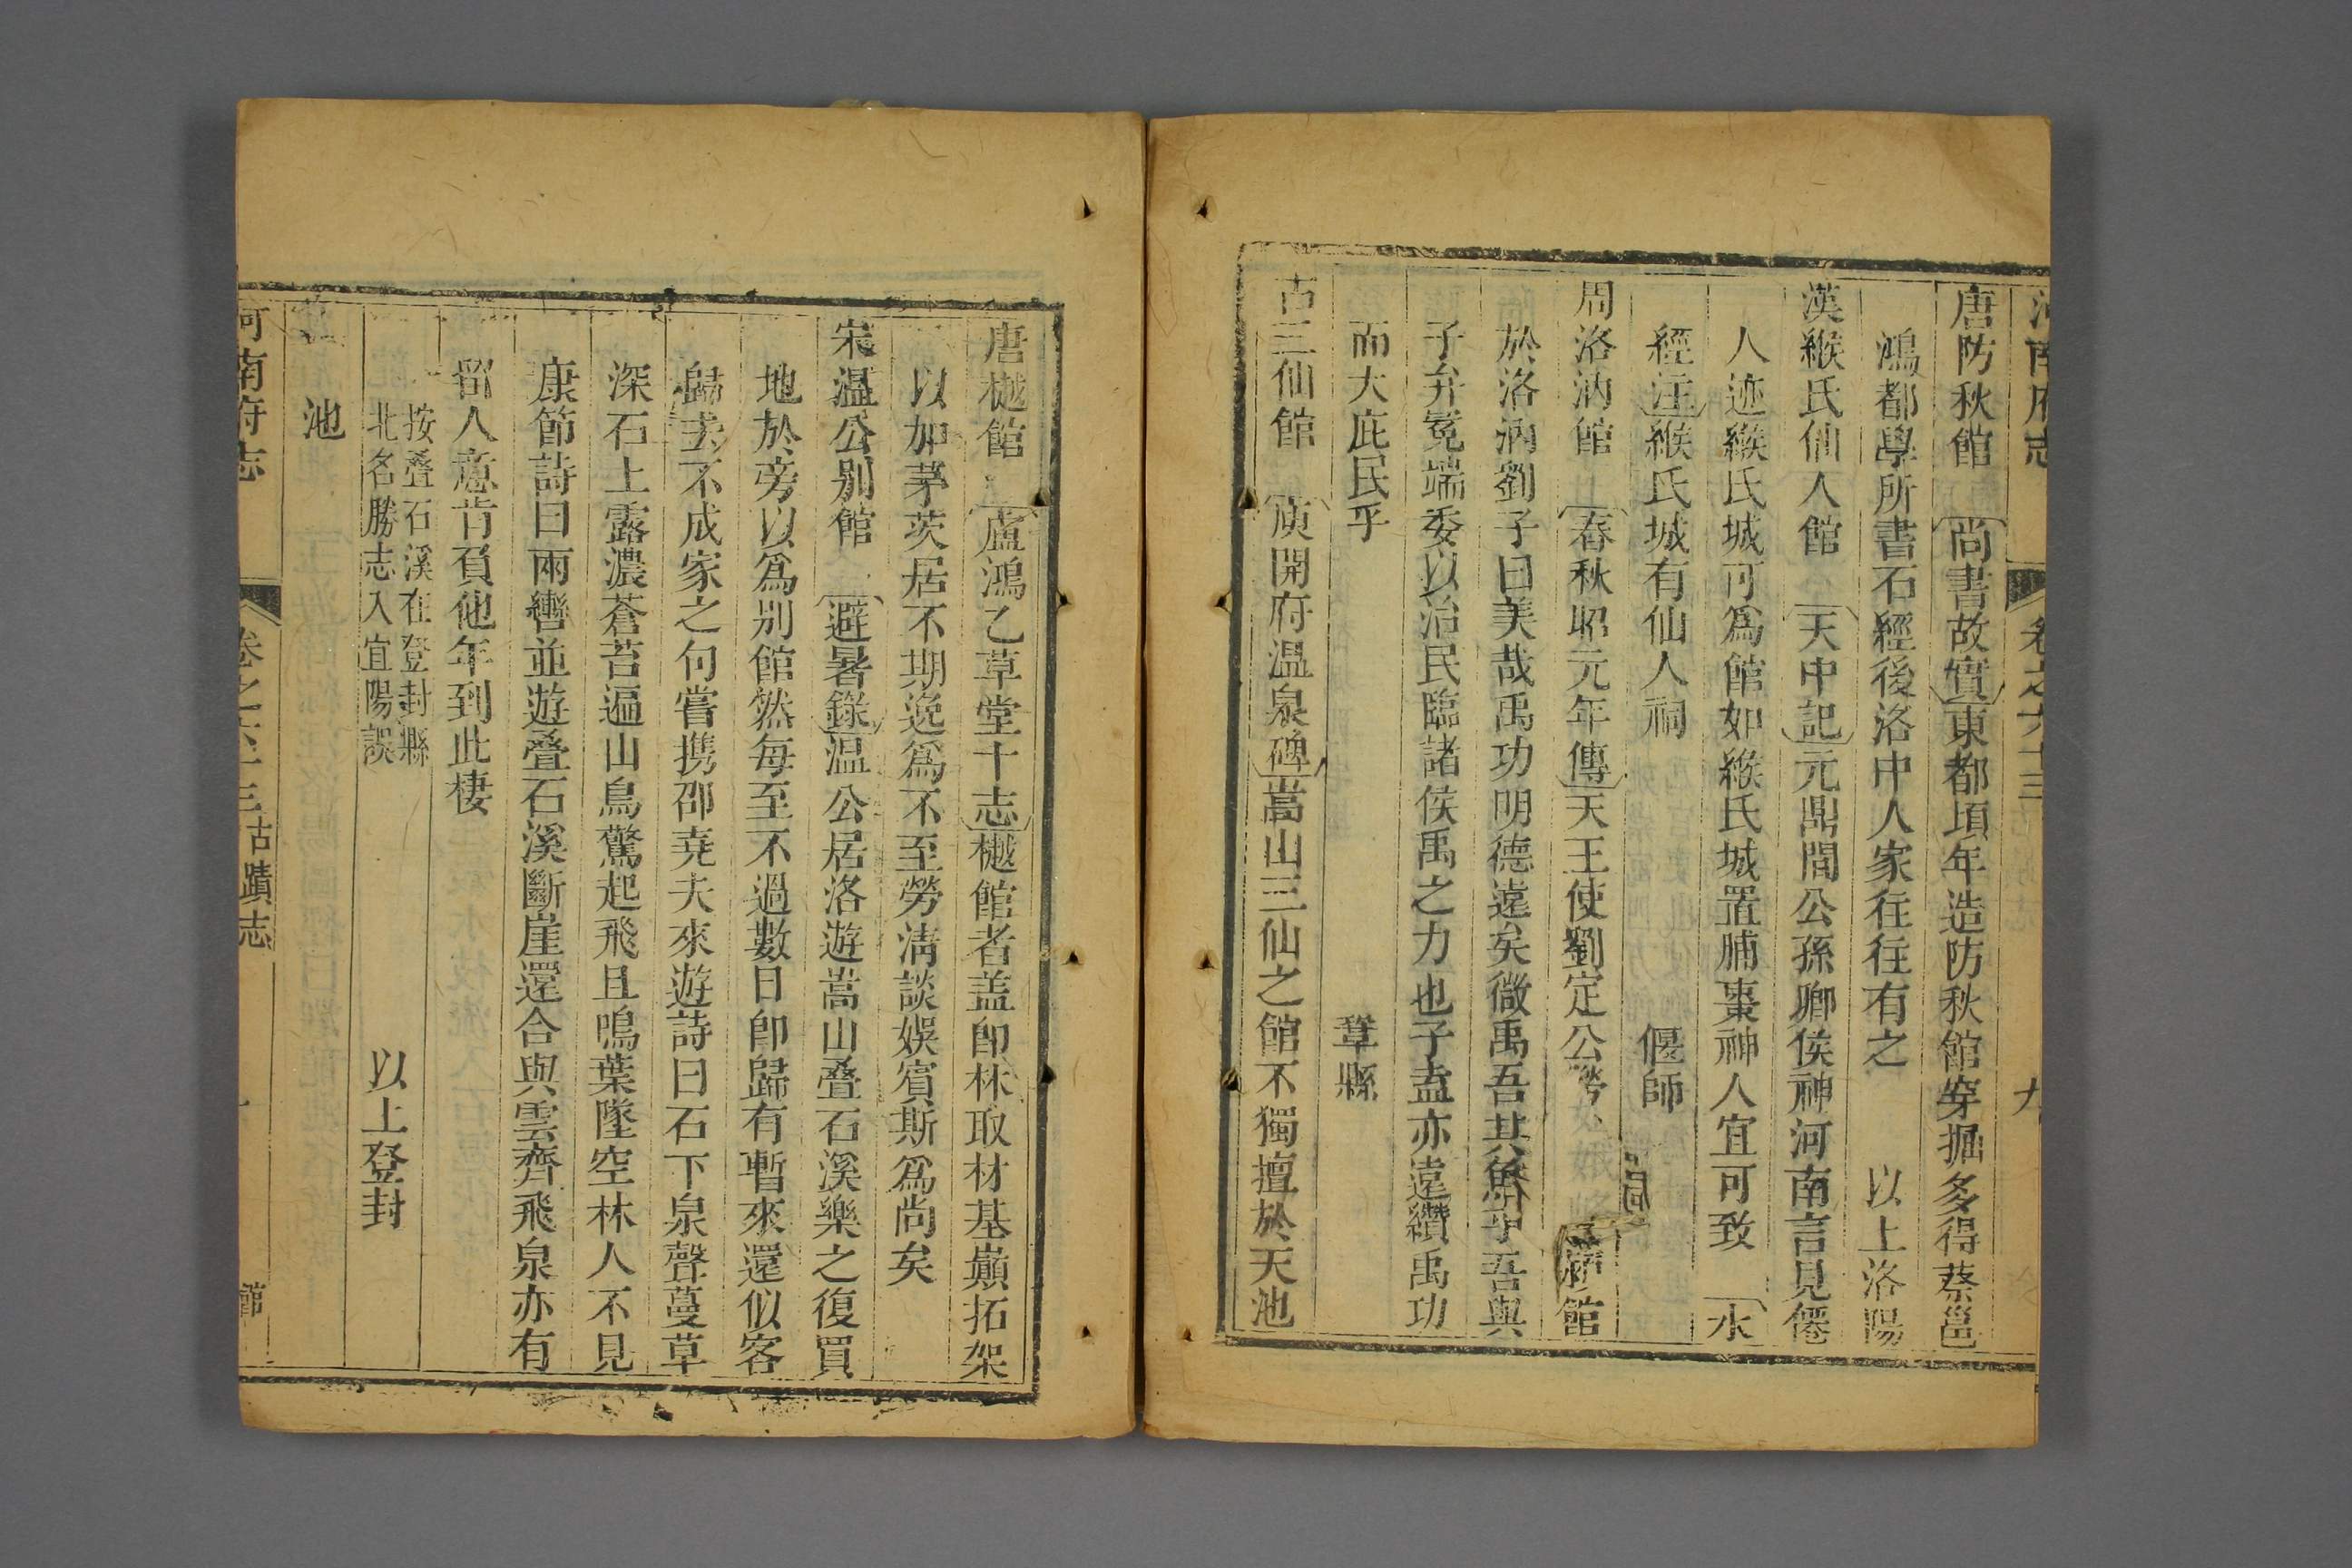 河南府志 卷之六十三 九
唐防秋館 尚書故實東都頃年造防秋館穿掘多得蔡邕
鴻都學所書石經後洛中人家往往有之 以上洛陽
漢緱氏仙人館 天中記元鼎間公孫卿侯神河南言見僊
人迹緱氏城可為館如緱氏城置脯棗神人宜可致 水
經注緱氏城有仙人祠 偃師
周洛汭館 春秋昭元年傳天王使劉定公勞 館
於洛汭劉子曰美哉禹功明德遠矣微禹吾其魚乎吾與
子弁冕端委以治民臨諸侯禹之力也子盍亦遠纘禹功
而大庇民乎 鞏縣
古三仙館 庾開府温泉碑嵩山三仙之館不獨擅於天池
唐樾館 盧鴻乙草堂十志樾館者盖即林取材基巔拓架
以加茅茨居不期逸為不至勞清談娛賓斯為尚矣
宋温公别館 避暑錄温公居洛遊嵩山叠石溪樂之復買
地於旁以為别館然每至不過數日即歸有暫來還似客
歸去不成家之句嘗携邵堯夫來遊詩曰石下泉聲蔓草
深石上露濃蒼苔遍山鳥驚起飛且鳴葉墜空林人不見
康節詩曰兩轡並遊叠石溪斷崖還合與雲齊飛泉亦有
留人意肯負他年到此棲
按叠石溪在登封縣
北名勝志入宜陽誤 以上登封
池
河南府志 卷之六十三 古蹟志 館